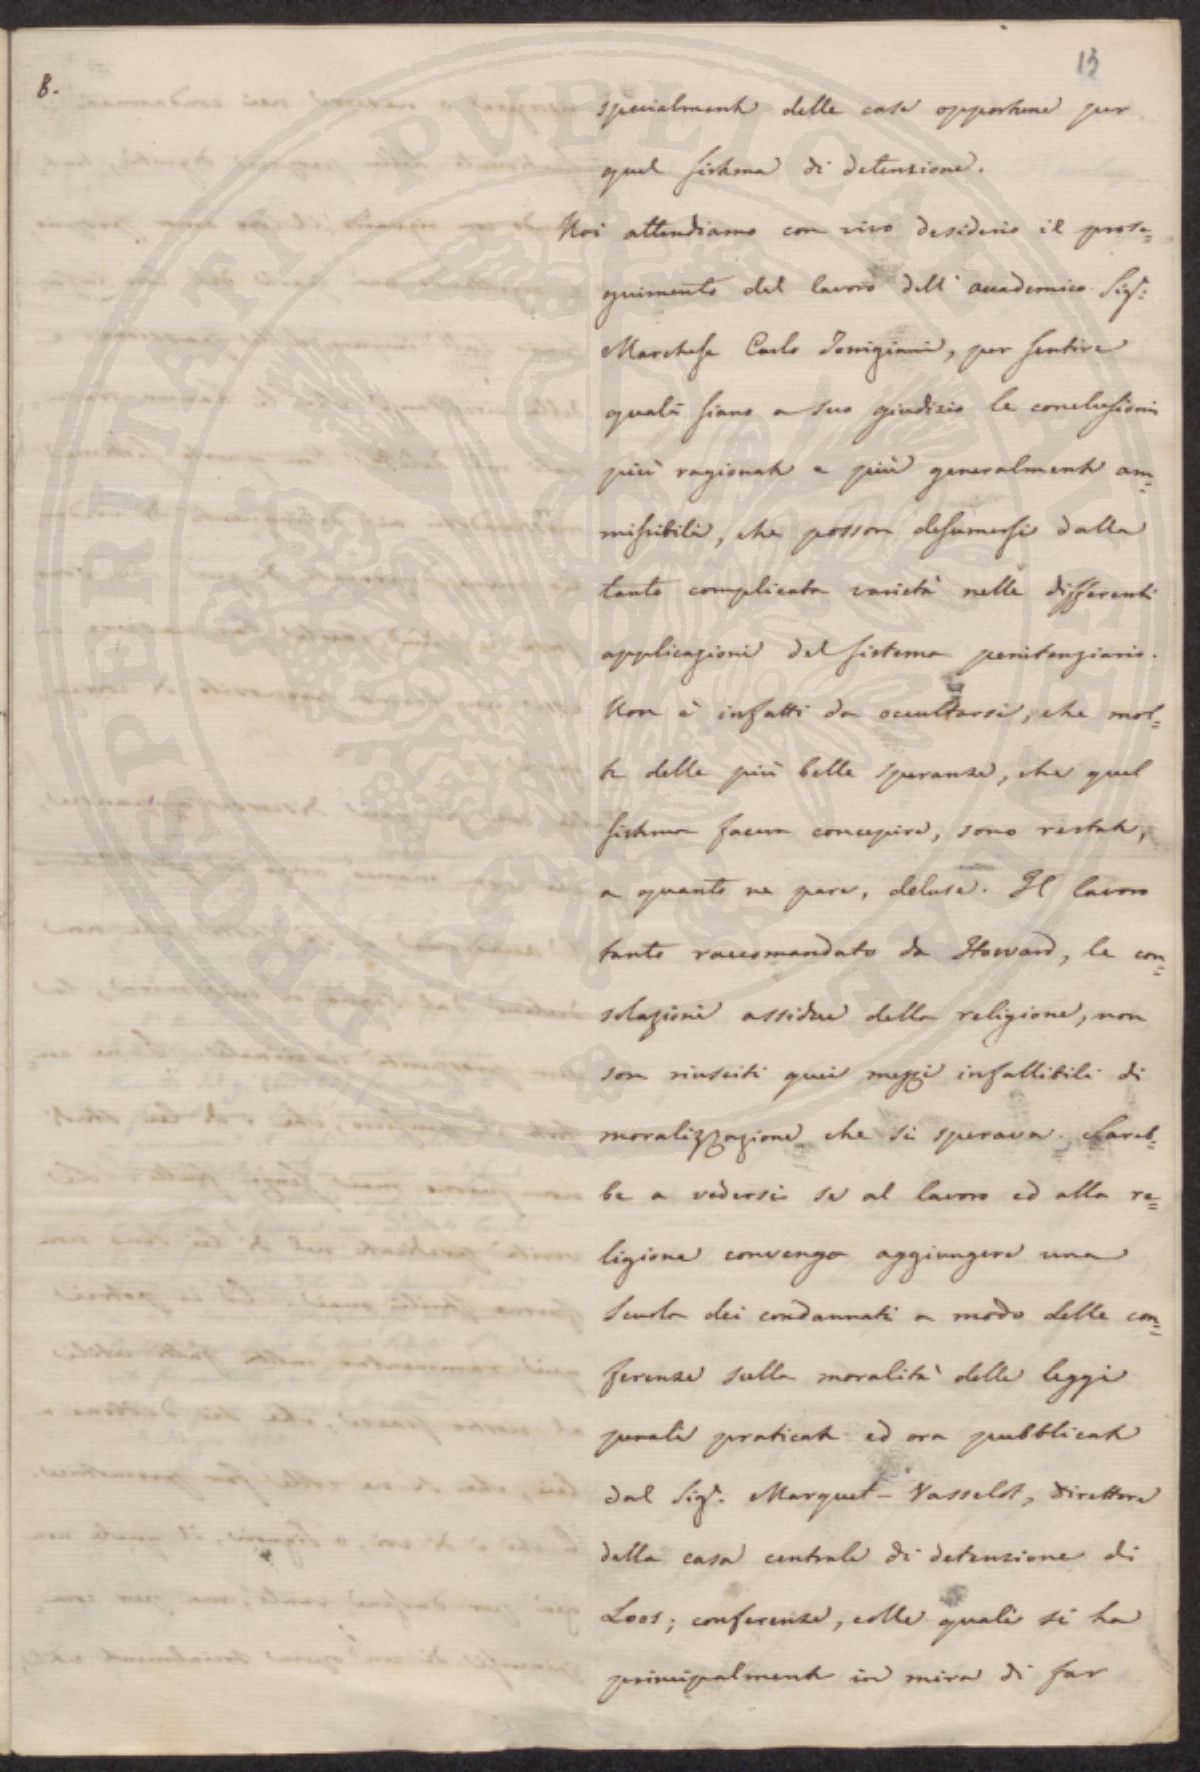 13
8.
specialmente delle case opportune per
quel sistema di detenzione.
Noi attendiamo con vivo desiderio il prose=
guimento del lavoro dell' accademico Sigr.
Marchese Carlo Torrigiani, per sentire
quali siano a suo giudizio le conclusioni
più ragionate e più generalmente am=
missibili, che posson desumersi dalla
tanto complicata varietà nelle differenti
applicazioni del sistema penitenziario.
Non è infatti da occultarsi, che mol=
te delle più belle speranze, che quel
sistema facea concepire, sono restate,
a quanto ne pare, deluse. Il lavoro
tanto raccomandato da Howard, le con=
solazioni assidue della religione, non
son riusciti quei mezzi infallibili di
moralizzazione che si sperava. Sareb=
be a vedersi se al lavoro ed alla re=
ligione convenga aggiungere una
scuola dei condannati a modo delle con=
ferenze sulla moralità delle leggi
penali praticate ed ora pubblicate
dal Sigr. Marquet-Vasselot, direttore
della casa centrale di detenzione di
Loos; conferenze, colle quali si ha
principalmente in mira di far
PROSPERITATI PUBLICAE AUGENDAE